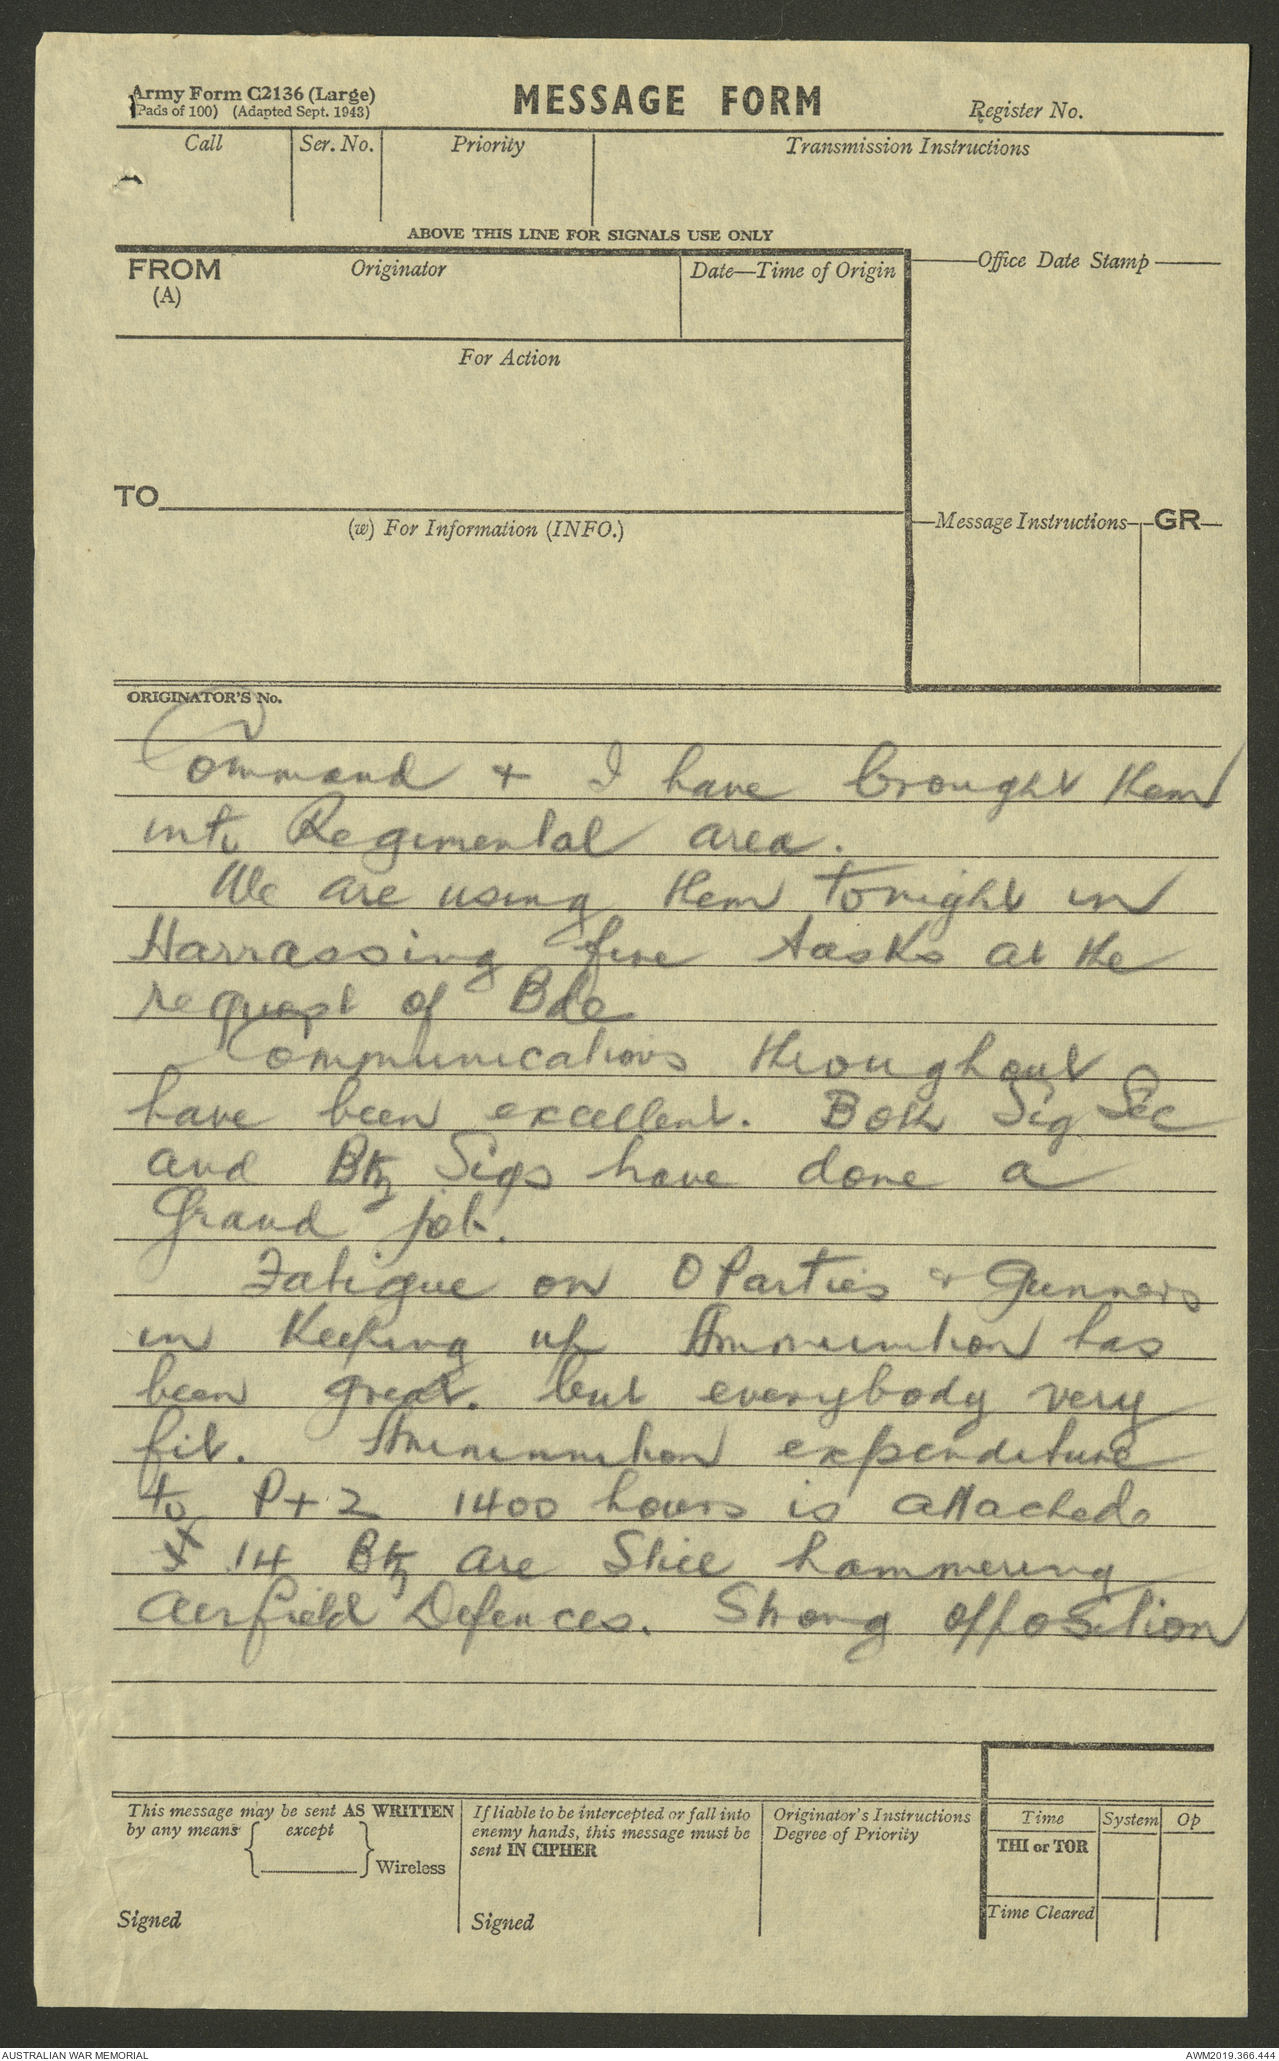 Army Form C2136 (Large)
(Pads of 100) (Adapted Sept. 1943)
MESSAGE FORM
Register No.
Call
Ser. No.
Priority
Transmission Instructions
ABOVE THIS LINE FOR SIGNALS USE ONLY
FROM
(A)
Originator
Date—Time of Origin
Office Date Stamp
For Action
TO
(w) For Information (INFO.)
Message Instructions
GR
ORIGINATOR'S No.
Command + I have brought them
into Regimental area.
We are using them tonight in
Harrassing fire tasks at the
request of Bde
Communications throughout
have been excellent. Both Sig Sec
and Bty Sigs have done a
Grand job.
Fatigue on O Parties + Gunners
in Keeping up Ammunition has
been great. but everybody very
fit. Ammunition expenditure
to P+2 1400 hours is attached.
X 14 Bty are Still hammering
Airfield Defences. Strong opposition
This message may be sent AS WRITTEN
by any means
except
Wireless
Signed
If liable to be intercepted or fall into
enemy hands, this message must be
sent IN CIPHER
Signed
Originator's Instructions
Degree of Priority
Time
System
Op
THI or TOR
Time Cleared
AUSTRALIAN WAR MEMORIAL
AWM2019.366.444